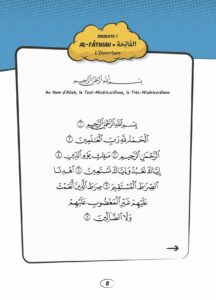 SOURATE 1
AL-FÂTIHAH • الفَاتِحَة
L'Ouverture
بِسْمِ اللَّهِ الرَّحْمَٰنِ الرَّحِيمِ
Au Nom d'Allah, le Tout-Miséricordieux, le Très-Miséricordieux
بِسْمِ اللَّهِ الرَّحْمَٰنِ الرَّحِيمِ ١
الْحَمْدُ لِلَّهِ رَبِّ الْعَالَمِينَ ٢
الرَّحْمَٰنِ الرَّحِيمِ ٣ مَالِكِ يَوْمِ الدِّينِ ٤
إِيَّاكَ نَعْبُدُ وَإِيَّاكَ نَسْتَعِينُ ٥ اهْدِنَا
الصِّرَاطَ الْمُسْتَقِيمَ ٦ صِرَاطَ الَّذِينَ أَنْعَمْتَ
عَلَيْهِمْ غَيْرِ الْمَغْضُوبِ عَلَيْهِمْ
وَلَا الضَّالِّينَ ٧
8